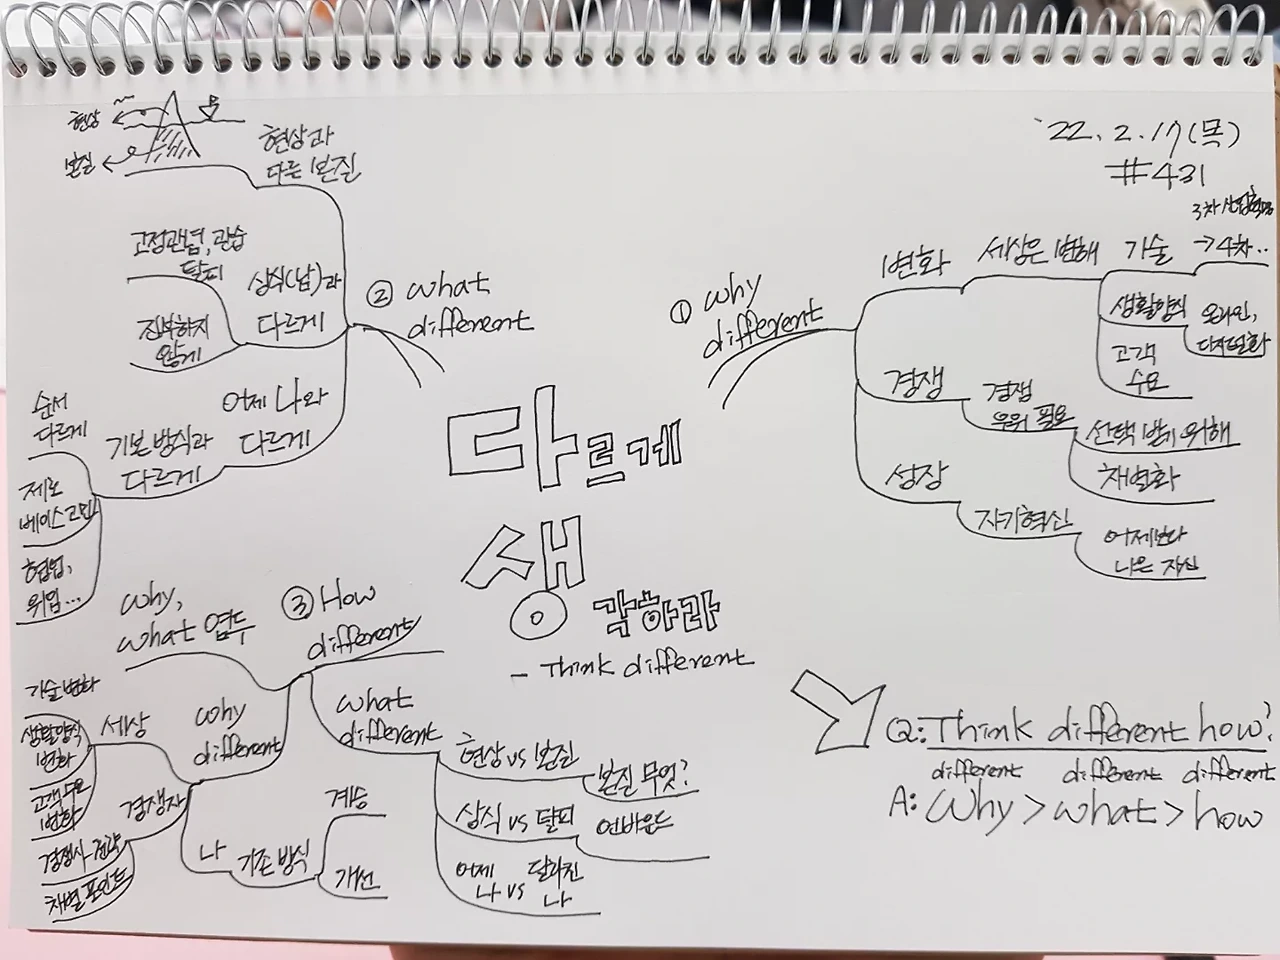 '22. 2. 17(목)
#431
다르게
생각하라
- Think different
① why
different
변화
세상은 변해
기술
3차 산업혁명
→4차..
생활양식
온라인,
디지털화
고객
수요
경쟁
경쟁
우위 필요
선택 받기 위해
차별화
성장
자기혁신
어제보다
나은 자신
② what
different
현상과
다른 본질
현상
본질
상식(남)과
다르게
고정관념, 관습
탈피
진부하지
않게
어제 나와
다르게
기본 방식과
다르게
순서
다르게
제로
베이스 고민
협업,
위임...
③ How
different
why,
what 염두
why
different
세상
기술 변화
생활양식
변화
고객 수요
변화
경쟁자
경쟁사 전략
차별 포인트
나
기존 방식
계승
개선
what
different
현상 vs 본질
본질 무엇?
상식 vs 탈피
언바운드
어제
나 vs
달라진
나
Q: Think different how?
different different different
A: Why > what > how